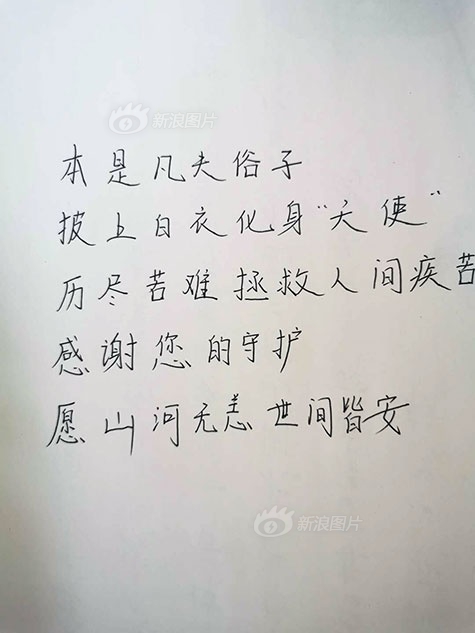 新浪图片
本是凡夫俗子
披上白衣化身“天使”
历尽苦难拯救人间疾苦
感谢您的守护
愿山河无恙世间皆安
新浪图片